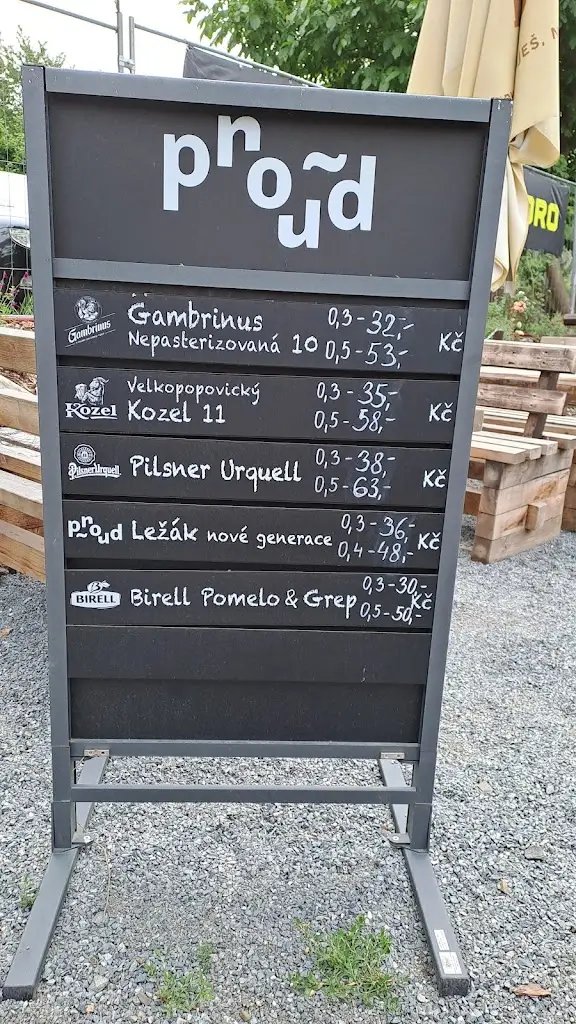 EŠ, M
ORO
proud
Gambrinus
Gambrinus 0,3-32,-
Nepasterizovaná 10 0,5-53,- Kč
Velkopopovický 0,3-35,-
Kozel Kozel 11 0,5-58,- Kč
0,3-38,-
Pilsner Urquell Pilsner Urquell 0,5-63,- Kč
0,3-36,-
proud Ležák nové generace 0,4-48,- Kč
0,3-30,-
BIRELL Birell Pomelo & Grep 0,5-50,- Kč